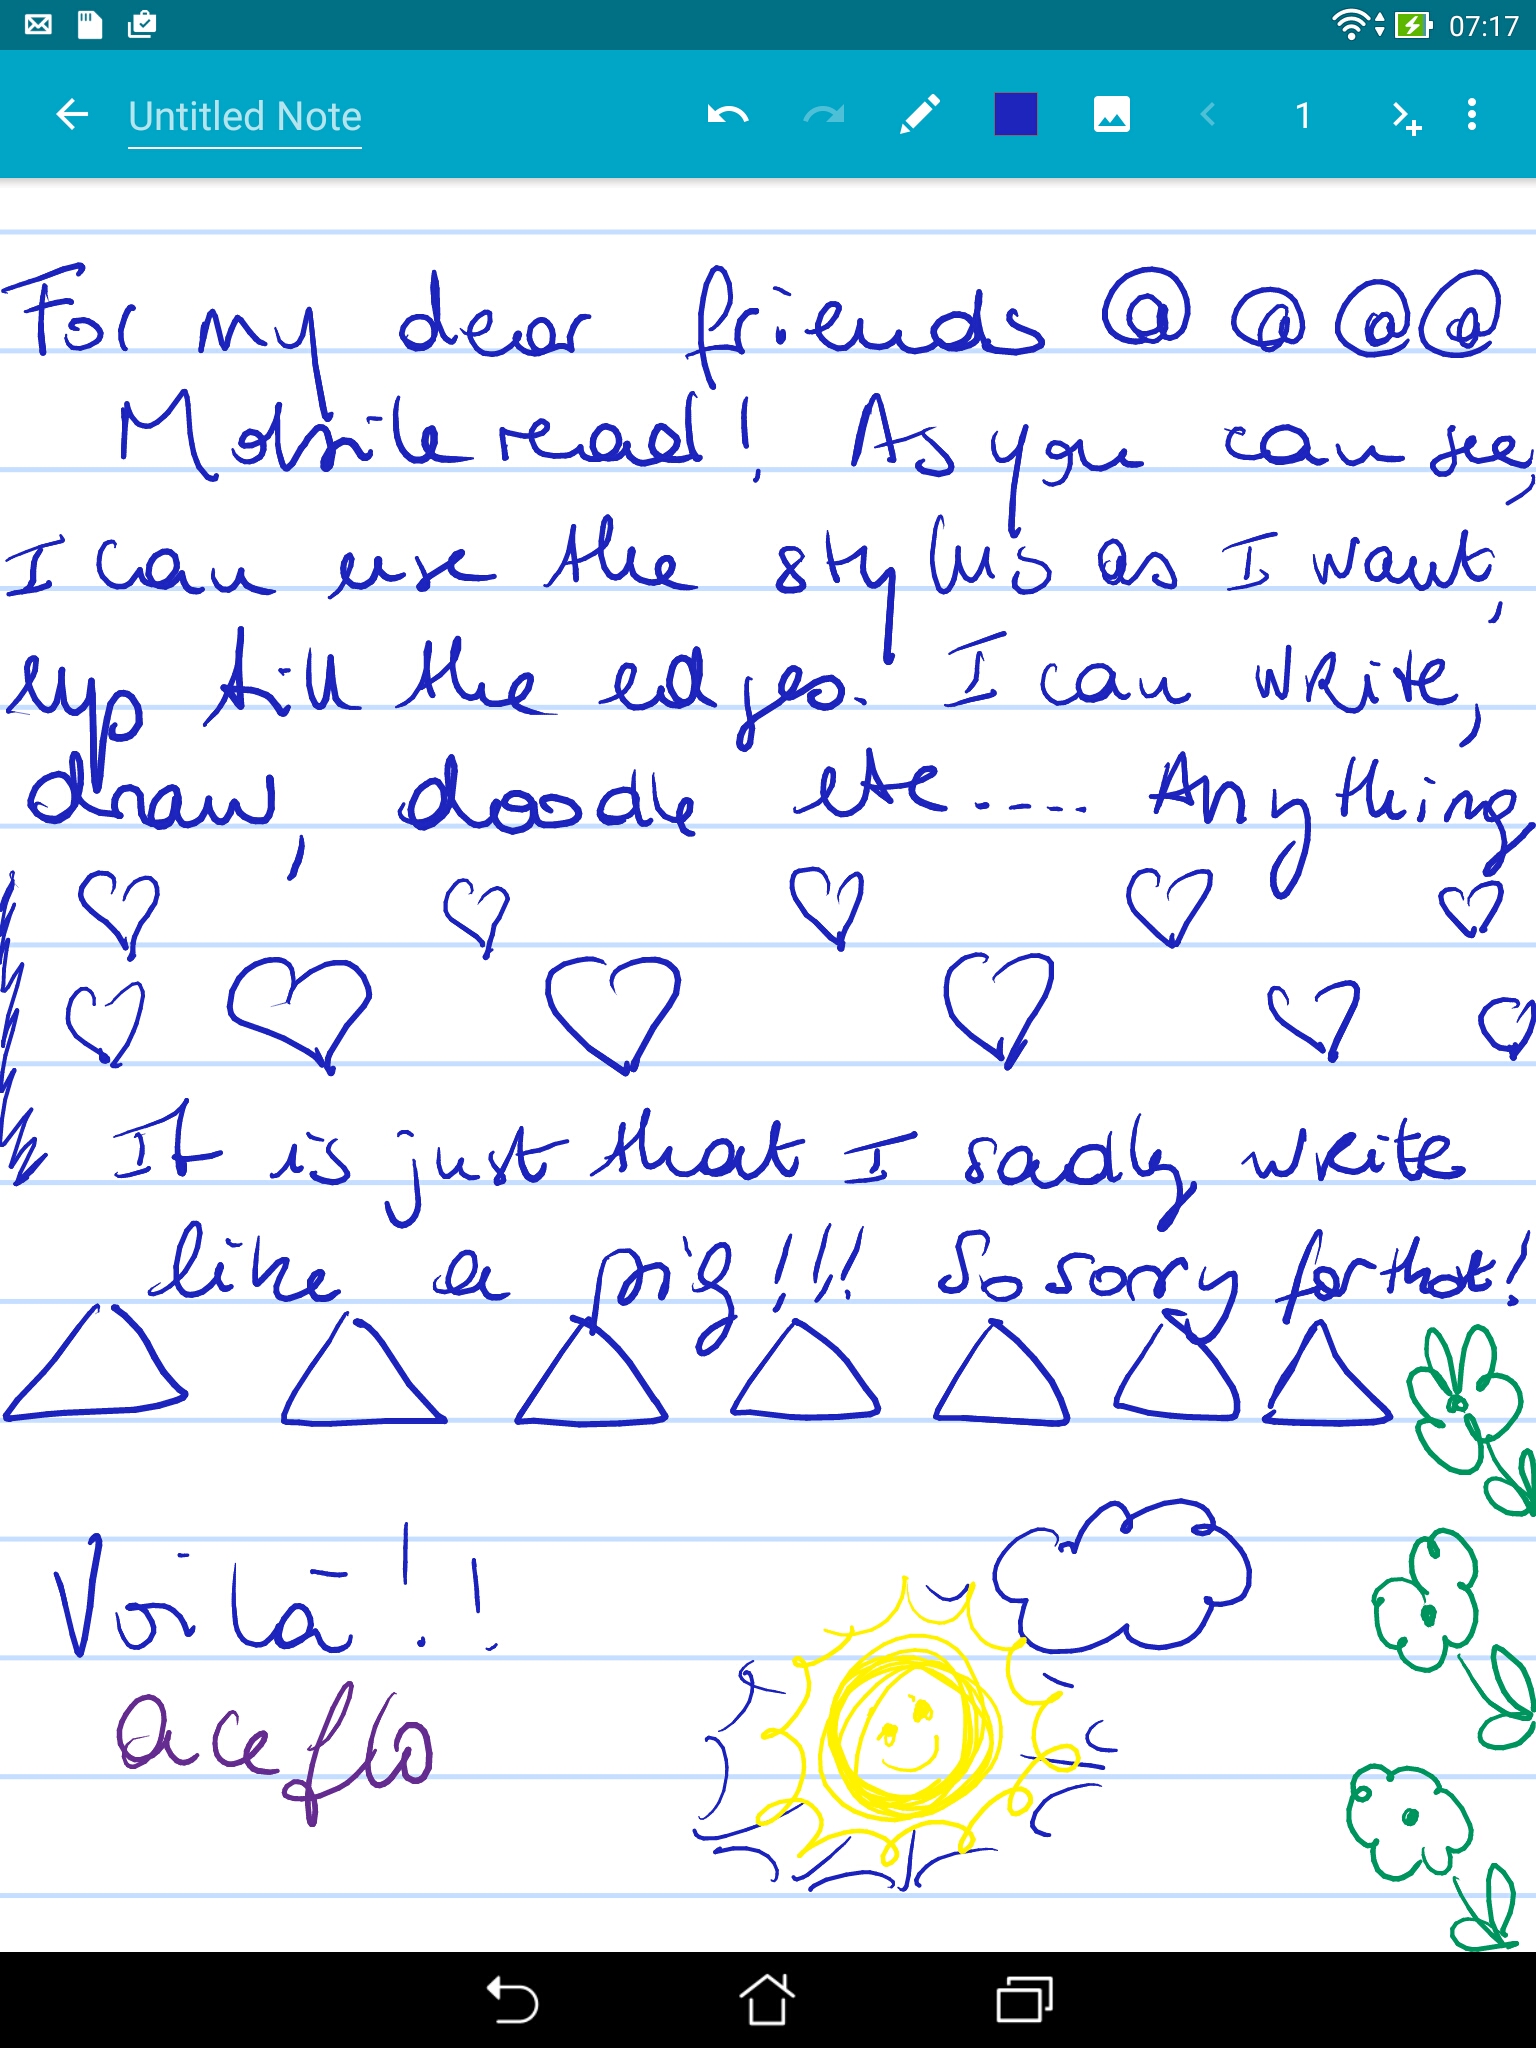 07:17
Untitled Note 1
For my dear friends @ @ @ @
Mobileread! As you can see,
I can use the stylus as I want,
up till the edges. I can write,
draw, doodle etc.... Anything
It is just that I sadly write
like a pig!!! So sorry for that!
Voilà!!
aceflo